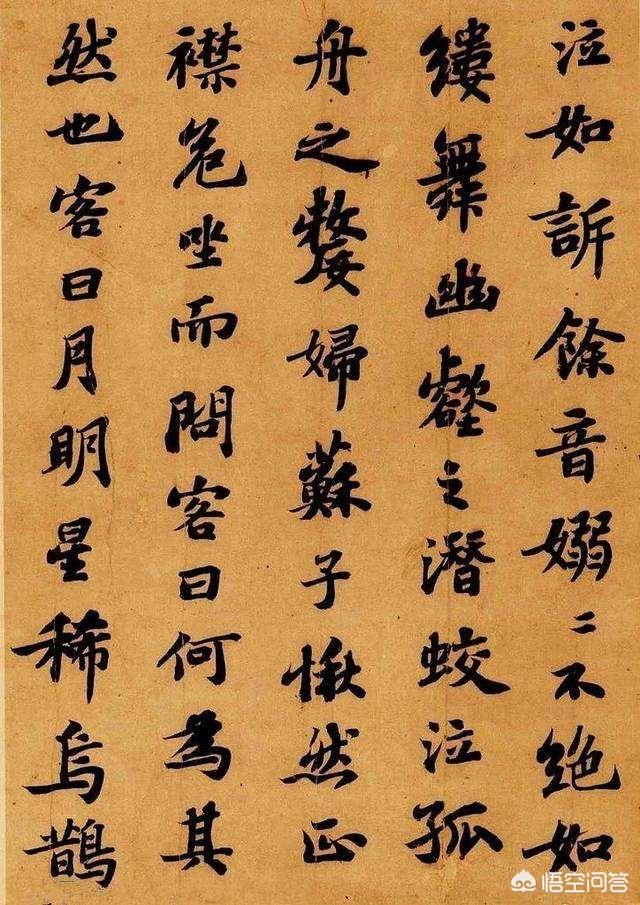 泣如訴餘音嫋〻不絕如
縷舞幽壑之潛蛟泣孤
舟之嫠婦蘇子愀然正
襟危坐而問客曰何為其
然也客曰月明星稀烏鵲
悟空问答